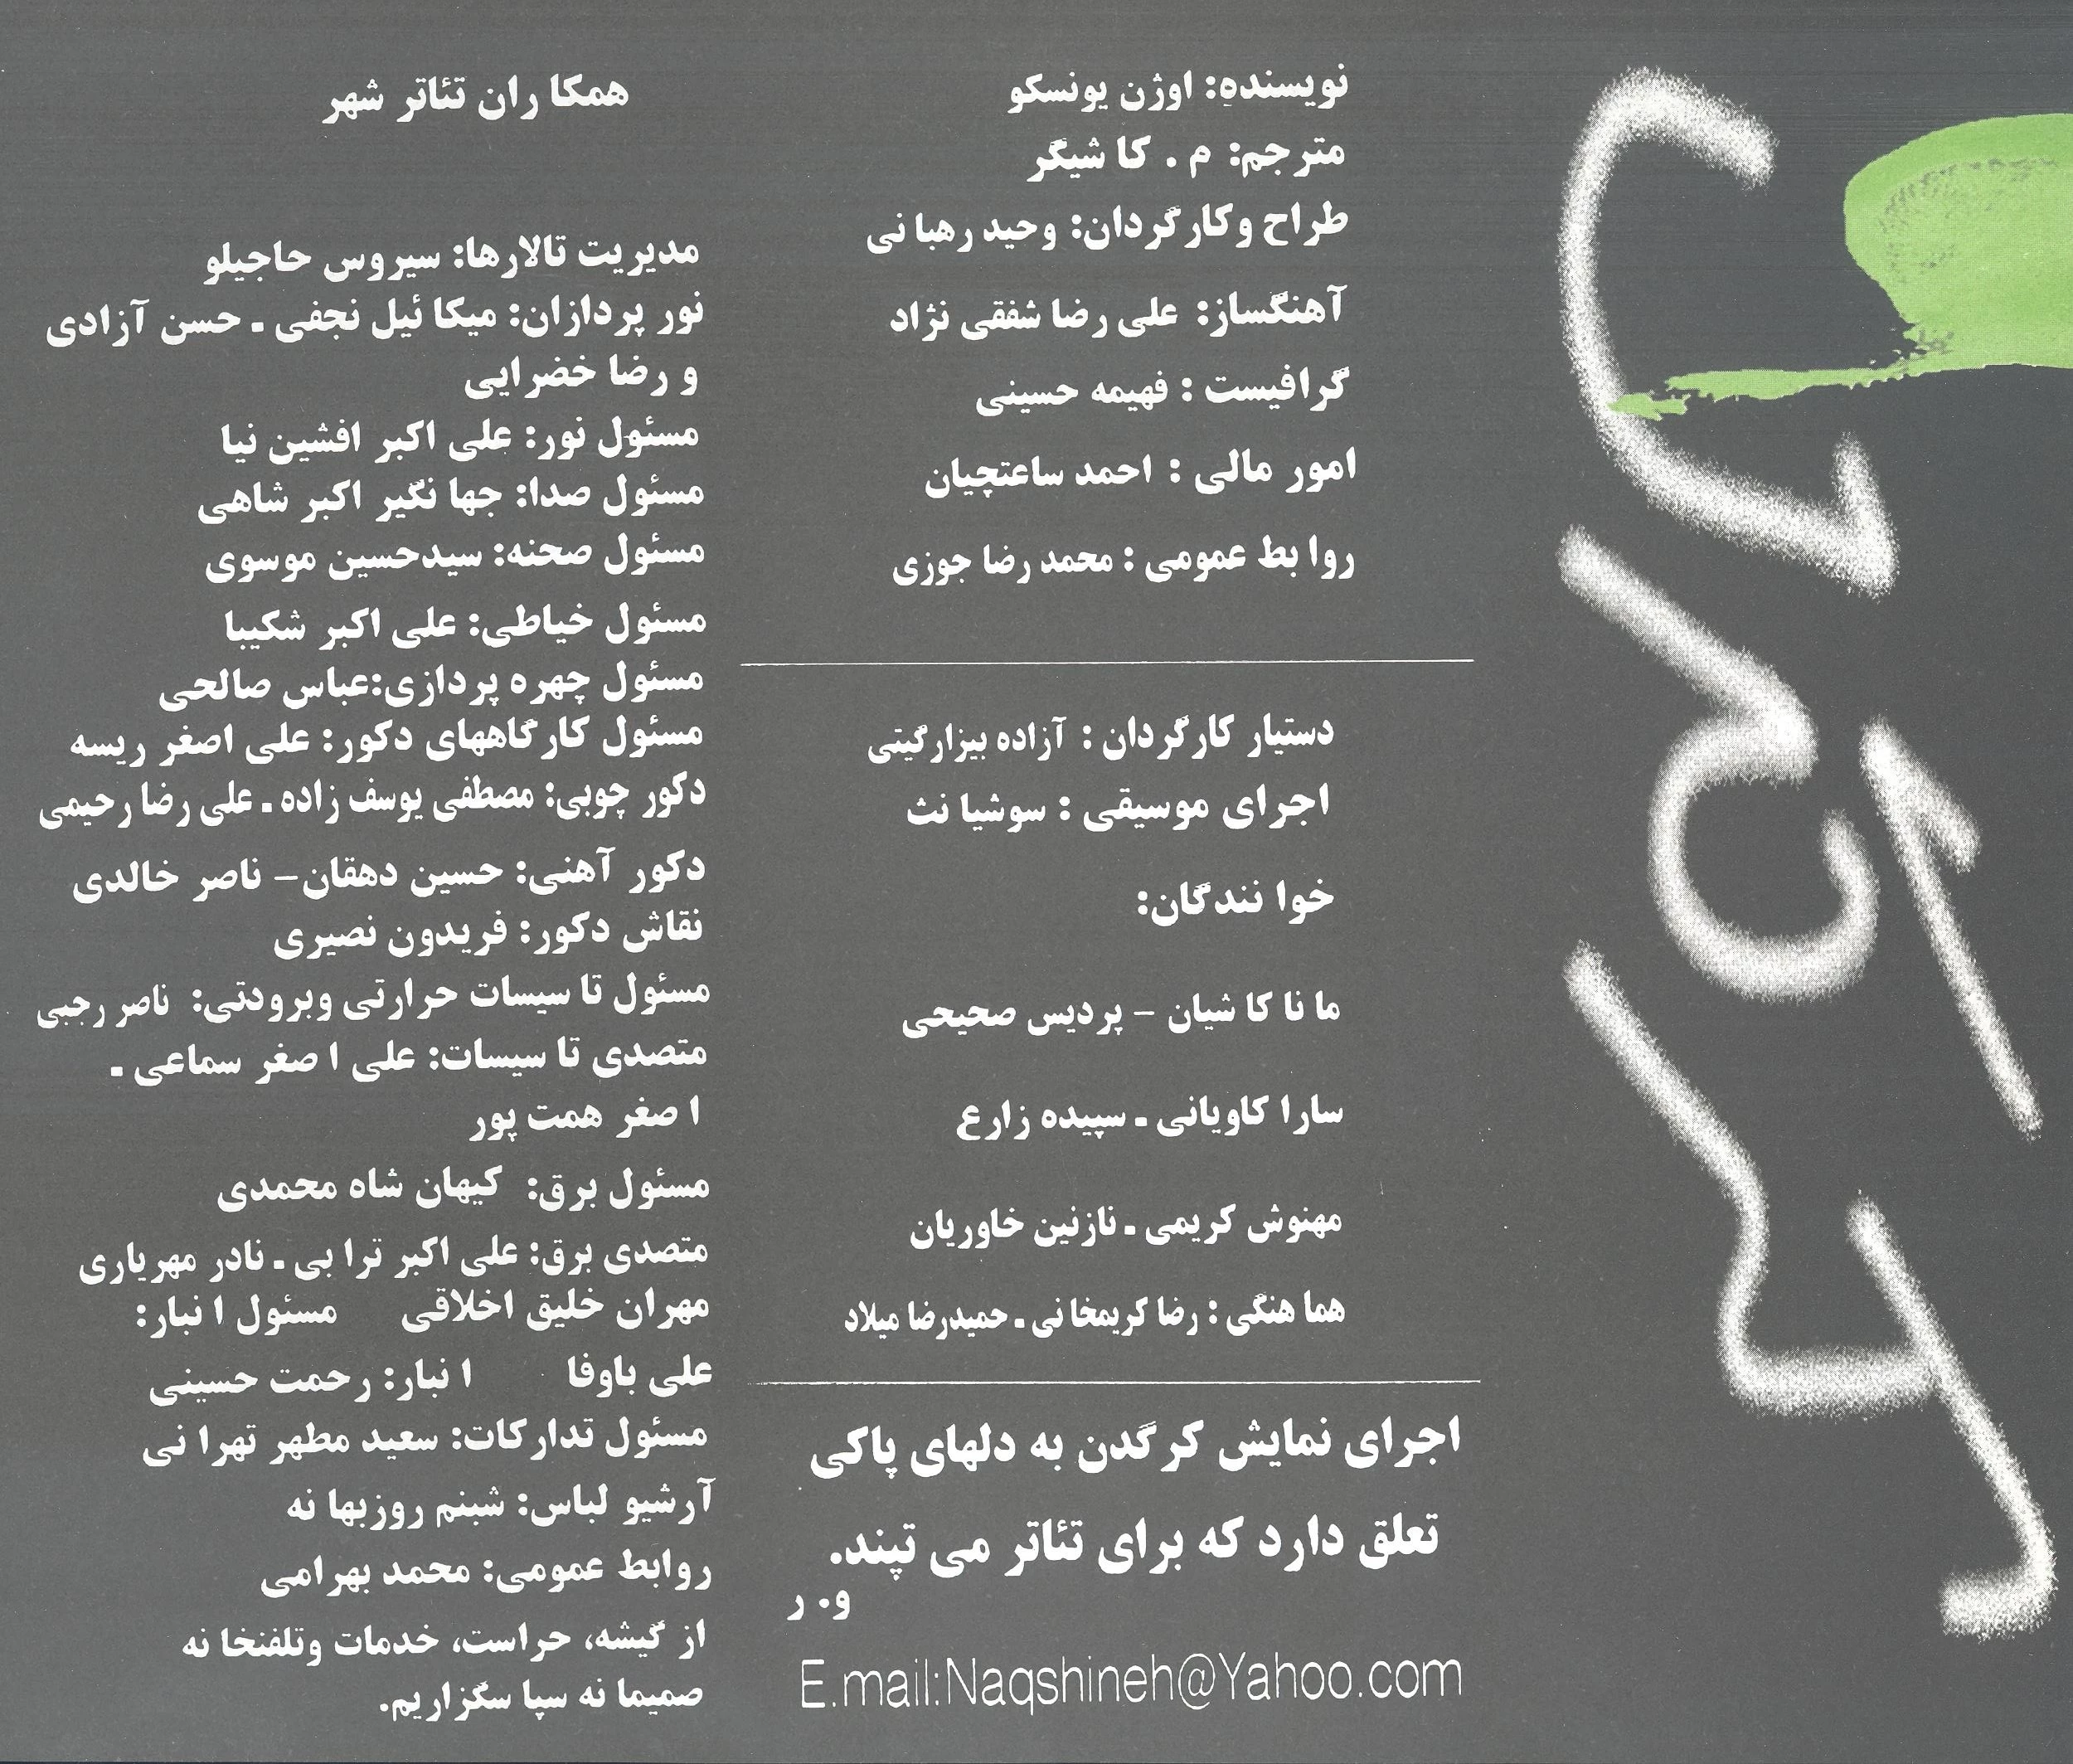 نویسنده: اوژن یونسکو
مترجم: م . کاشیگر
طراح وکارگردان: وحید رهبانی
آهنگساز: علی رضا شفقی نژاد
گرافیست : فهیمه حسینی
امور مالی : احمد ساعتچیان
روابط عمومی : محمد رضا جوزی
دستیار کارگردان : آزاده بیزارگیتی
اجرای موسیقی : سوشیانث
خوانندگان:
مانا کاشیان – پردیس صحیحی
سارا کاویانی - سپیده زارع
مهنوش کریمی - نازنین خاوریان
هماهنگی : رضا کریمخانی - حمیدرضا میلاد
اجرای نمایش کرگدن به دلهای پاکی
تعلق دارد که برای تئاتر می تپند.
و. ر
E.mail:Naqshineh@Yahoo.com
همکاران تئاتر شهر
مدیریت تالارها: سیروس حاجیلو
نور پردازان: میکائیل نجفی - حسن آزادی
و رضا خضرایی
مسئول نور: علی اکبر افشین نیا
مسئول صدا: جهانگیر اکبر شاهی
مسئول صحنه: سیدحسین موسوی
مسئول خیاطی: علی اکبر شکیبا
مسئول چهره پردازی:عباس صالحی
مسئول کارگاههای دکور: علی اصغر ریسه
دکور چوبی: مصطفی یوسف زاده - علی رضا رحیمی
دکور آهنی: حسین دهقان– ناصر خالدی
نقاش دکور: فریدون نصیری
مسئول تاسیسات حرارتی وبرودتی: ناصر رجبی
متصدی تاسیسات: علی اصغر سماعی -
اصغر همت پور
مسئول برق: کیهان شاه محمدی
متصدی برق: علی اکبر ترابی - نادر مهریاری
مهران خلیق اخلاقی مسئول انبار:
علی باوفا انبار: رحمت حسینی
مسئول تدارکات: سعید مطهر تهرانی
آرشیو لباس: شبنم روزبهانه
روابط عمومی: محمد بهرامی
از گیشه، حراست، خدمات وتلفنخانه
صمیمانه سپاسگزاریم.